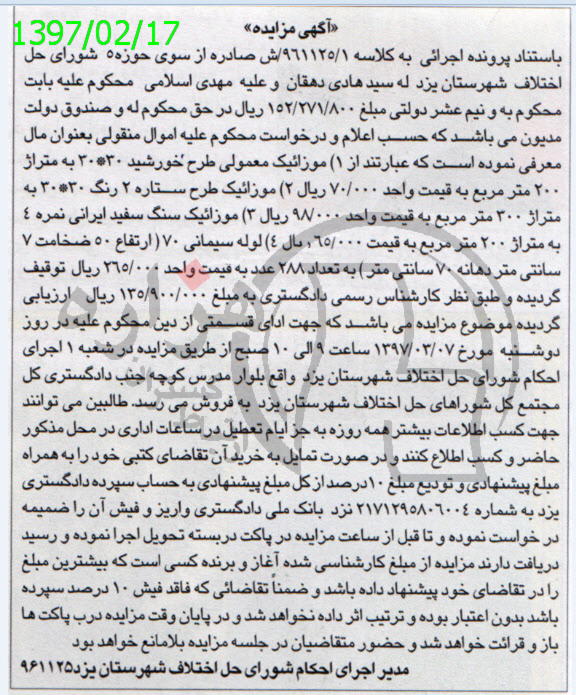 1397/02/17
«آگهی مزایده»
باستناد پرونده اجرائی به کلاسه ۹۶۱۱۲۵/۱ش صادره از سوی حوزه۵ شورای حل
اختلاف شهرستان یزد له سید هادی دهقان و علیه مهدی اسلامی محکوم علیه بابت
محکوم به و نیم عشر دولتی مبلغ ۱۵۲/۲۷۱/۸۰۰ ریال در حق محکوم له و صندوق دولت
مدیون می باشد که حسب اعلام و درخواست محکوم علیه اموال منقولی بعنوان مال
معرفی نموده است که عبارتند از ۱) موزائیک معمولی طرح خورشید ۳۰*۳۰ به متراژ
۲۰۰ متر مربع به قیمت واحد ۷۰/۰۰۰ ریال ۲) موزائیک طرح ستاره ۲ رنگ ۳۰*۳۰ به
متراژ ۳۰۰ متر مربع به قیمت واحد ۹۸/۰۰۰ ریال ۳) موزائیک سنگ سفید ایرانی نمره ۴
به متراژ ۲۰۰ متر مربع به قیمت ۰۶۵/۰۰۰ ریال ۴) لوله سیمانی ۷۰ (ارتفاع ۵۰ ضخامت ۷
سانتی متر دهانه ۷۰ سانتی متر) به تعداد ۲۸۸ عدد به قیمت واحد ۲۶۵/۰۰۰ ریال توقیف
گردیده و طبق نظر کارشناس رسمی دادگستری به مبلغ ۱۳۵/۹۰۰/۰۰۰ ریال ارزیابی
گردیده موضوع مزایده می باشد که جهت ادای قسمتی از دین محکوم علیه در روز
دوشنبه مورخ ۱۳۹۷/۰۳/۰۷ ساعت ۹ الی ۱۰ صبح از طریق مزایده در شعبه ۱ اجرای
احکام شورای حل اختلاف شهرستان یزد واقع بلوار مدرس کوچه جنب دادگستری کل
مجتمع کل شوراهای حل اختلاف شهرستان یزد به فروش می رسد. طالبین می توانند
جهت کسب اطلاعات بیشتر همه روزه به جز ایام تعطیل در ساعات اداری در محل مذکور
حاضر و کسب اطلاع کنند و در صورت تمایل به خرید آن تقاضای کتبی خود را به همراه
مبلغ پیشنهادی و تودیع مبلغ ۱۰درصد از کل مبلغ پیشنهادی به حساب سپرده دادگستری
یزد به شماره ۲۱۷۱۲۹۵۸۰۶۰۰۴ نزد بانک ملی دادگستری واریز و فیش آن را ضمیمه
در خواست نموده و تا قبل از ساعت مزایده در پاکت دربسته تحویل اجرا نموده و رسید
دریافت دارند مزایده از مبلغ کارشناسی شده آغاز و برنده کسی است که بیشترین مبلغ
را در تقاضای خود پیشنهاد داده باشد و ضمناً تقاضائی که فاقد فیش ۱۰ درصد سپرده
باشد بدون اعتبار بوده و ترتیب اثر داده نخواهد شد و در پایان وقت مزایده درب پاکت ها
باز و قرائت خواهد شد و حضور متقاضیان در جلسه مزایده بلامانع خواهد بود
مدیر اجرای احکام شورای حل اختلاف شهرستان یزد۹۶۱۱۲۵